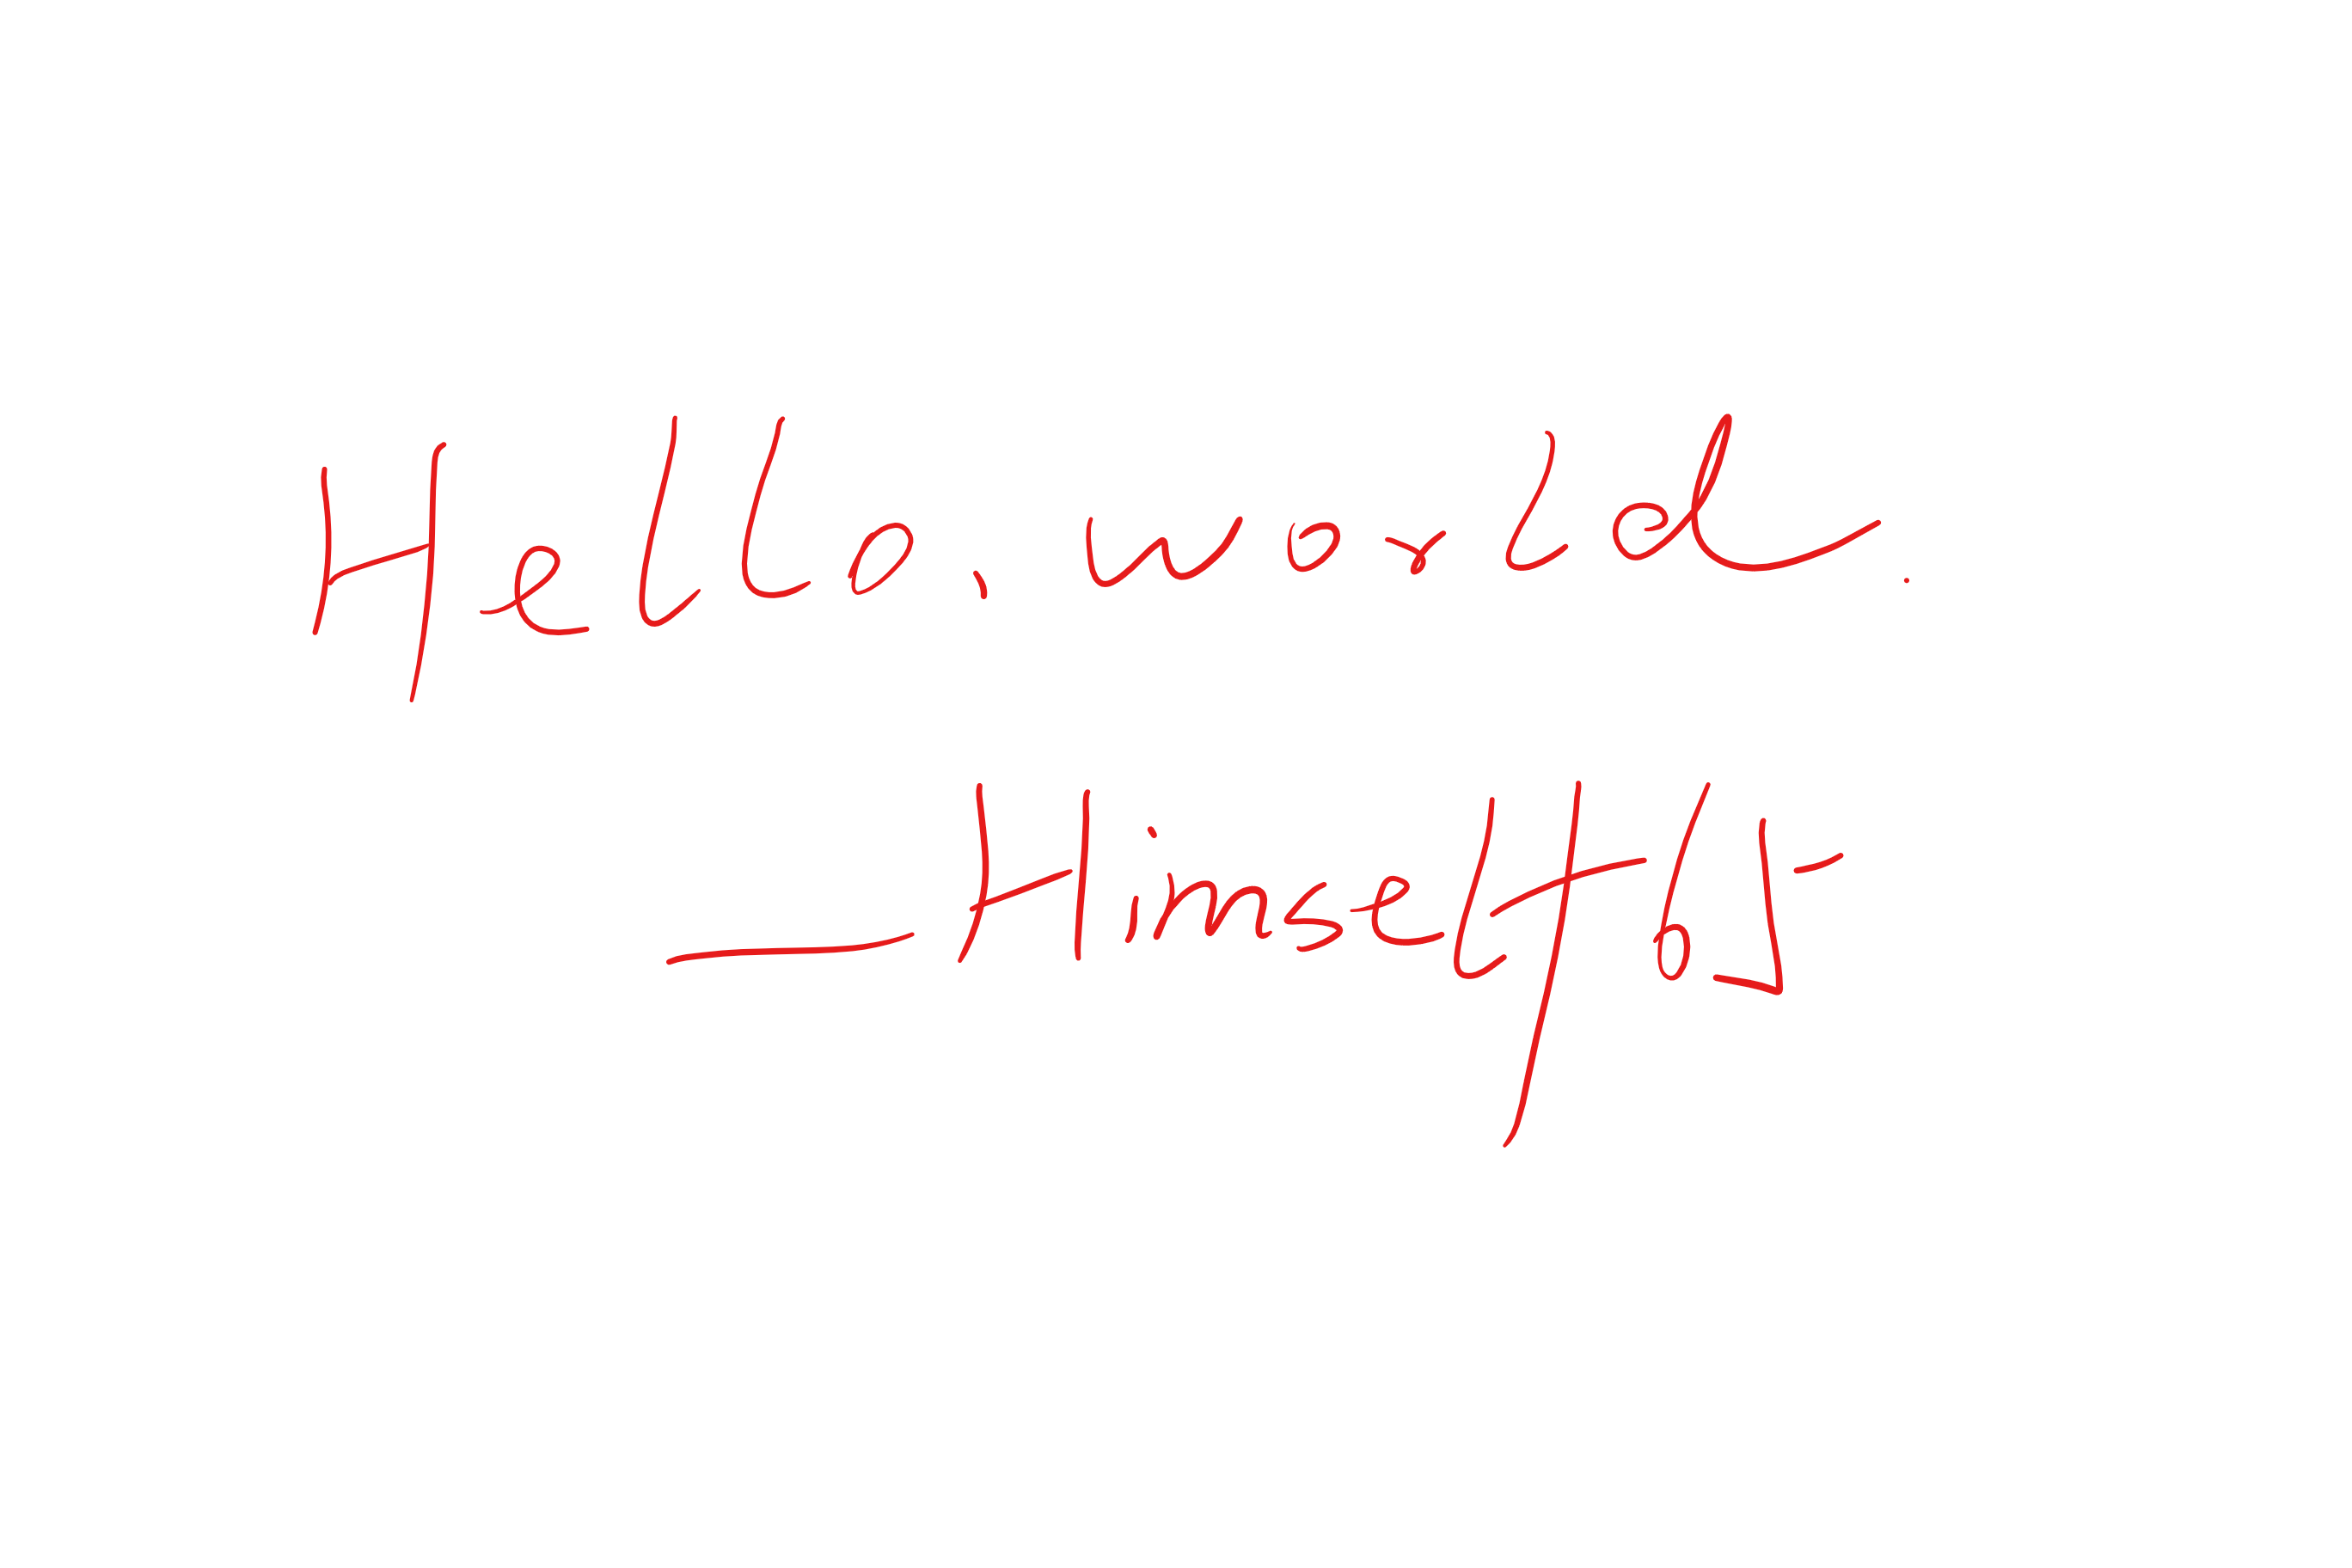 Hello, world.
—Himself65